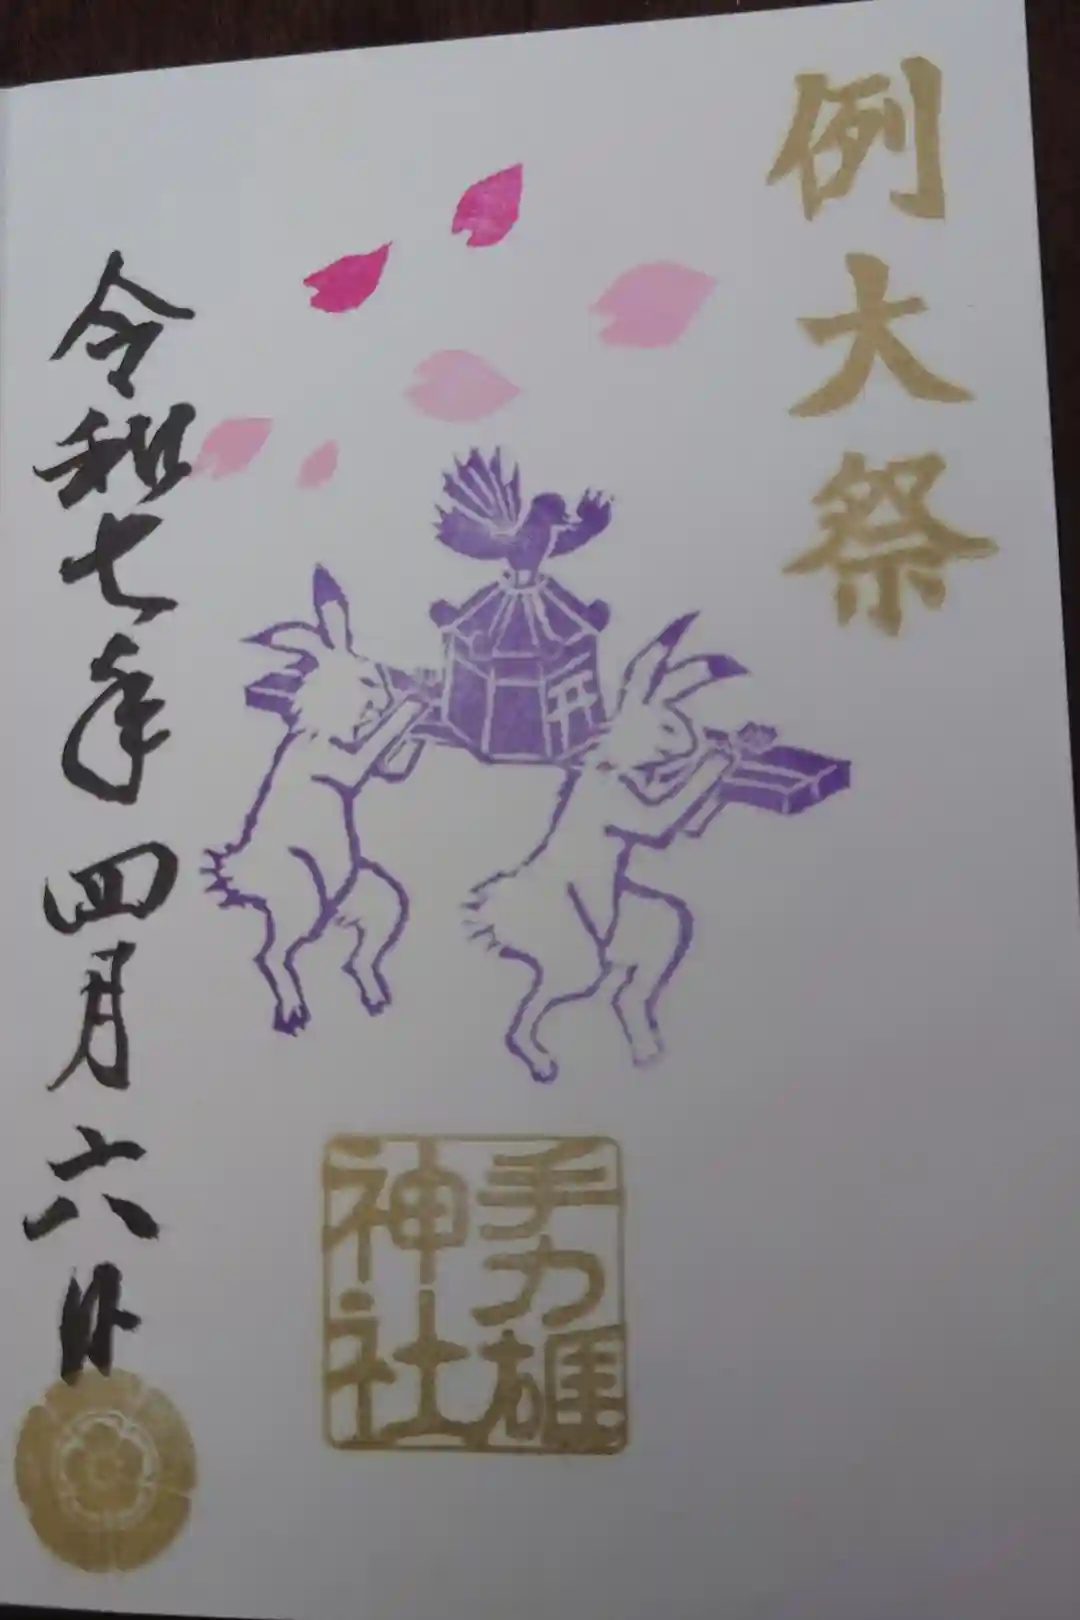 例大祭
手力雄
神社
令和七年四月六日